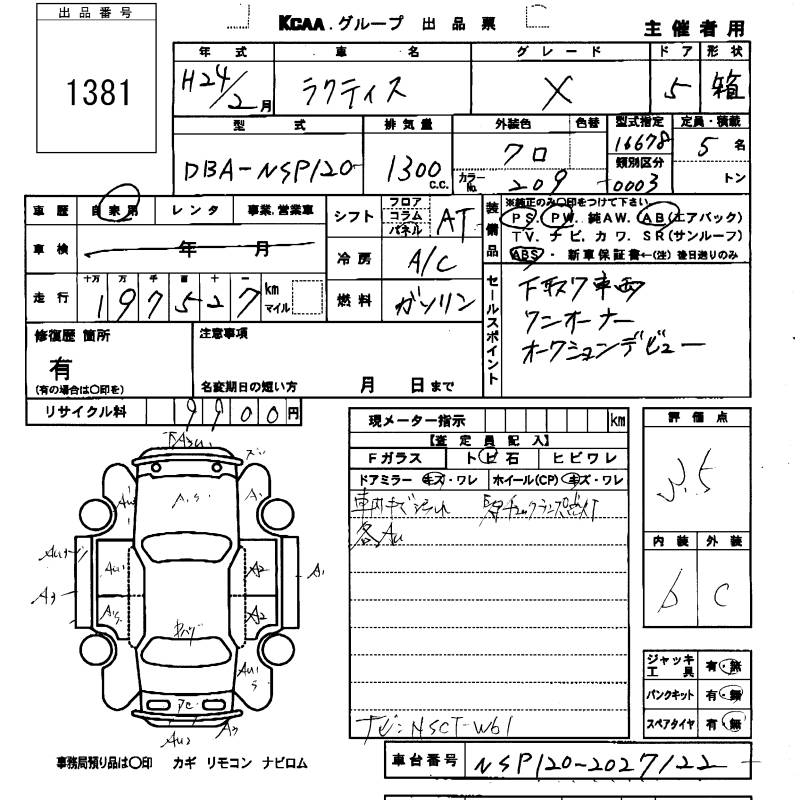 出品番号
1381
KCAA.グループ 出品票
主催者用
年式 車名 グレード ドア 形状
H24/2月 ラクティス X 5 箱
型式 排気量 外装色 色替 型式指定 定員・積載
DBA-NSP120 1300 c.c. クロ カラーNo. 209 16678 類別区分 0003 5名 トン
車歴 自家用 レンタ 事業,営業車
車検 年 月
走行 十万 万 千 百 十 一
197527 km マイル
シフト フロア コラム パネル AT
冷房 A/C
燃料 ガソリン
装備品 ※純正のみ〇印をつけて下さい
PS. PW. 純AW. AB(エアバック)
TV. ナビ. カワ. SR(サンルーフ)
ABS・新車保証書←(注)後日送りのみ
セールスポイント
下取り車両
ワンオーナー
オークションデビュー
修復歴 箇所
有
(有の場合は〇印を)
注意事項
名変期日の短い方 月 日まで
リサイクル料 9900円
現メーター指示 km
【査定員記入】
Fガラス トビ石 ヒビワレ
ドアミラー キズ・ワレ ホイール(CP) キズ・ワレ
各AU
ナビ:NSCT-W61
評価点
3.5
内装 外装
b C
A1
A2
A2
A1
A3
AU2
ジャッキ工具 有・無
パンクキット 有・無
スペアタイヤ 有・無
事務局預り品は〇印 カギ リモコン ナビロム
車台番号 NSP120-2027122